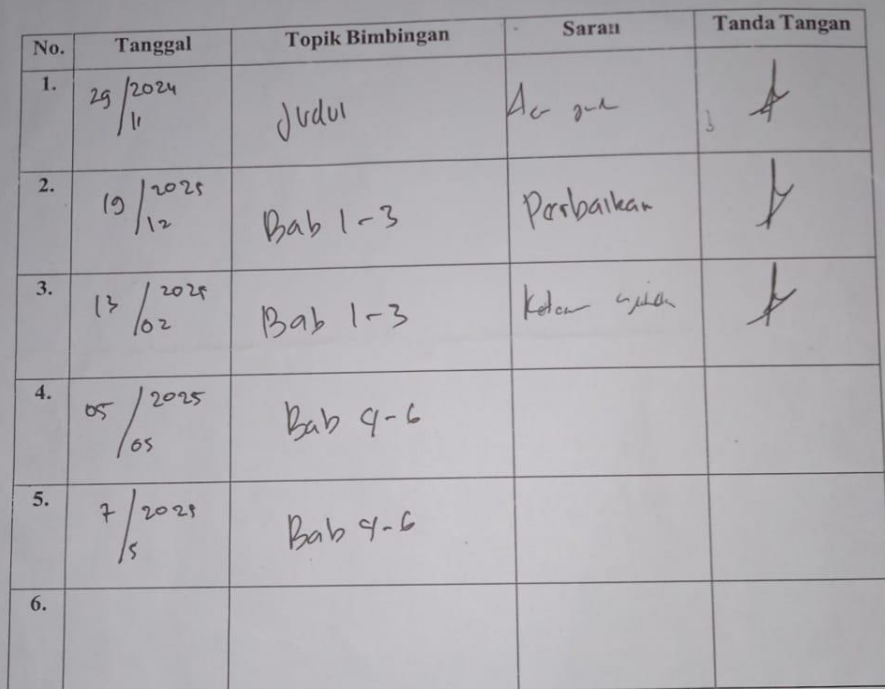 No. Tanggal Topik Bimbingan Saran Tanda Tangan
1. 29/11 2024 Judul Acc
2. 19/12 2025 Bab 1-3 Perbaikan
3. 13/02 2025 Bab 1-3
4. 05/05 2025 Bab 4-6
5. 7/5 2025 Bab 4-6
6.